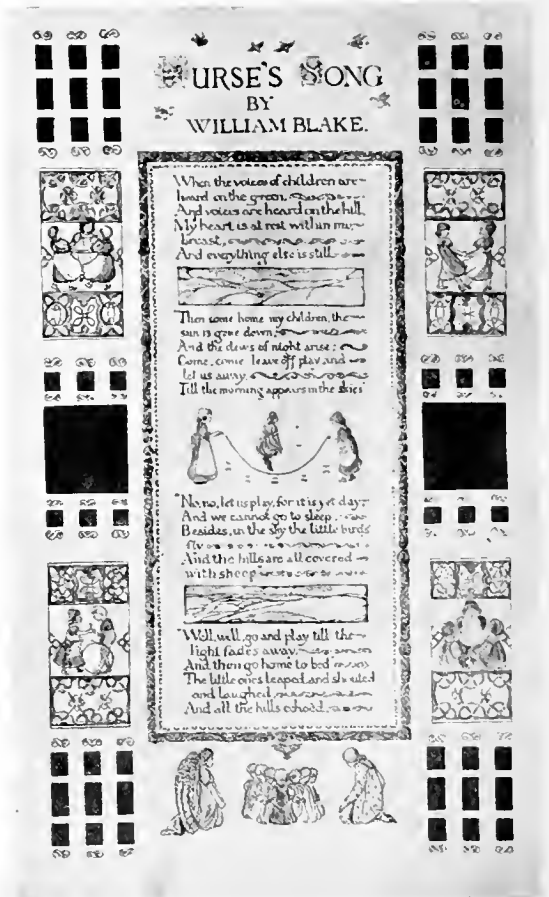 NURSE'S SONG
BY
WILLIAM BLAKE.
When the voices of children are
heard on the green,
And voices are heard on the hill,
My heart is at rest within my
breast,
And everything else is still.
"Then come home my children, the
sun is gone down,
And the dews of night arise;
Come, come leave off play, and
let us away,
Till the morning appears in the skies"
"No, no, let us play, for it is yet day,
And we cannot go to sleep.
Besides, in the sky the little birds
fly
And the hills are all covered
with sheep"
"Well, well, go and play till the
light fades away,
And then go home to bed"
The little ones leaped and shouted
and laughed,
And all the hills echoèd.